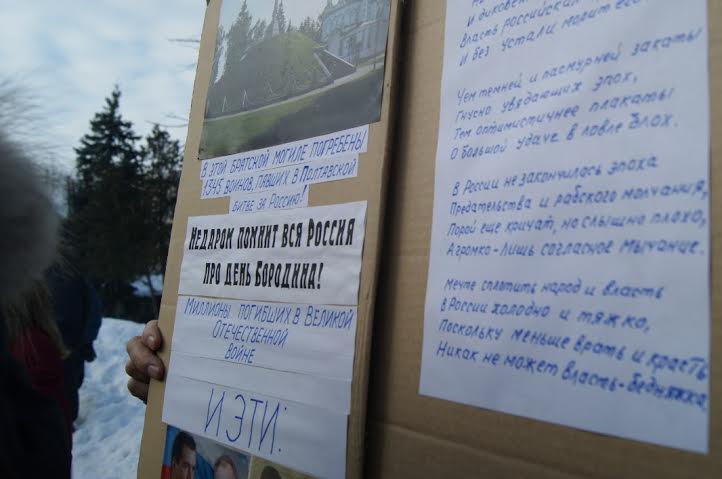 В ЭТОЙ БРАТСКОЙ МОГИЛЕ ПОГРЕБЕНЫ
1345 ВОИНОВ, ПАВШИХ В ПОЛТАВСКОЙ
БИТВЕ ЗА РОССИЮ!
НЕДАРОМ ПОМНИТ ВСЯ РОССИЯ
ПРО ДЕНЬ БОРОДИНА!
МИЛЛИОНЫ ПОГИБШИХ В ВЕЛИКОЙ
ОТЕЧЕСТВЕННОЙ
ВОЙНЕ
И ЭТИ:
Власть российская
И без устали молит его
Чем темней и пасмурней закаты
Гнусно увядающих эпох,
Тем оптимистичнее плакаты
О большой удаче в ловле блох.
В России не закончилась эпоха
Предательства и рабского молчания,
Порой еще кричат, но слышно плохо,
А громко-лишь согласное мычание.
Мечте сплотить народ и власть
В России холодно и тяжко,
Поскольку меньше врать и красть
Никак не может власть-бедняжка.